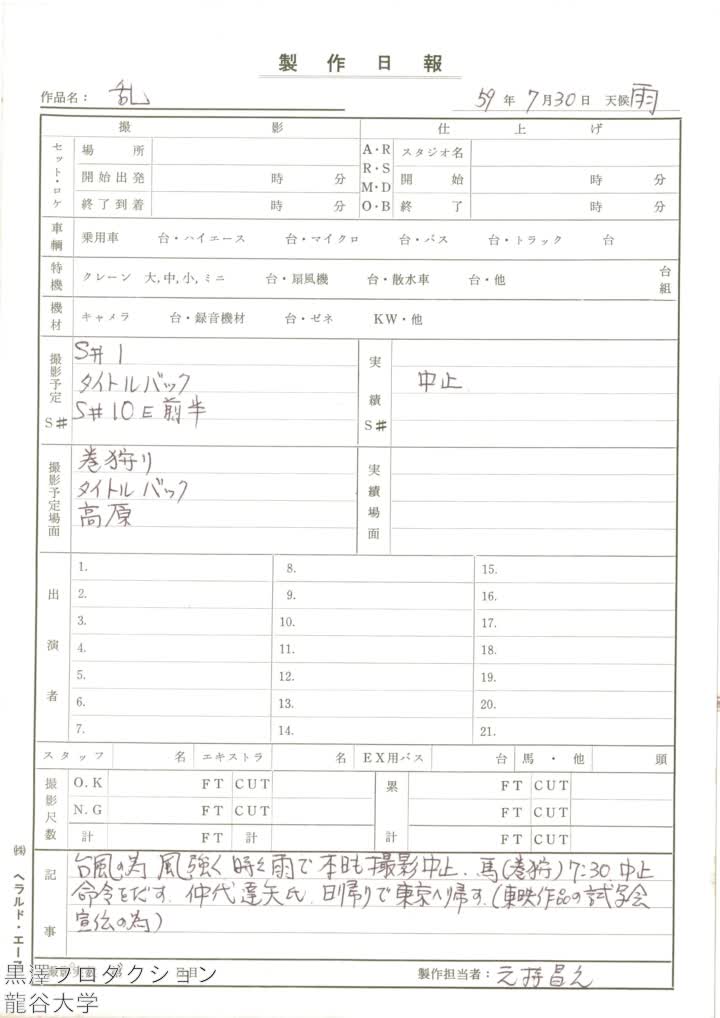 製作日報
作品名: 乱
59年 7月30日 天候 雨
撮影 仕上げ
セット・ロケ 場所 A・R R・S M・D O・B スタジオ名
開始出発 時 分 開始 時 分
終了到着 時 分 終了 時 分
車輛 乗用車 台・ハイエース 台・マイクロ 台・バス 台・トラック 台
特機 クレーン 大,中,小,ミニ 台・扇風機 台・散水車 台・他 台組
機材 キャメラ 台・録音機材 台・ゼネ KW・他
撮影予定 S# 実績 S#
S#1
タイトルバック 中止
S#10E前半
撮影予定場面 実績場面
巻狩り
タイトルバック
高原
出演者
1. 8. 15.
2. 9. 16.
3. 10. 17.
4. 11. 18.
5. 12. 19.
6. 13. 20.
7. 14. 21.
スタッフ 名 エキストラ 名 EX用バス 台 馬・他 頭
撮影尺数 O.K FT CUT 累計 FT CUT
N.G FT CUT FT CUT
計 FT 計 FT CUT
記事
台風の為 風強く 時々雨で本日も撮影中止. 馬(巻狩)7:30 中止
命令をだす. 仲代達矢氏. 日帰りで東京へ帰す. (東映作品の試写会
宣伝の為)
製作担当者: 元持昌之
㈱ ヘラルド・エース
黒澤プロダクション
龍谷大学